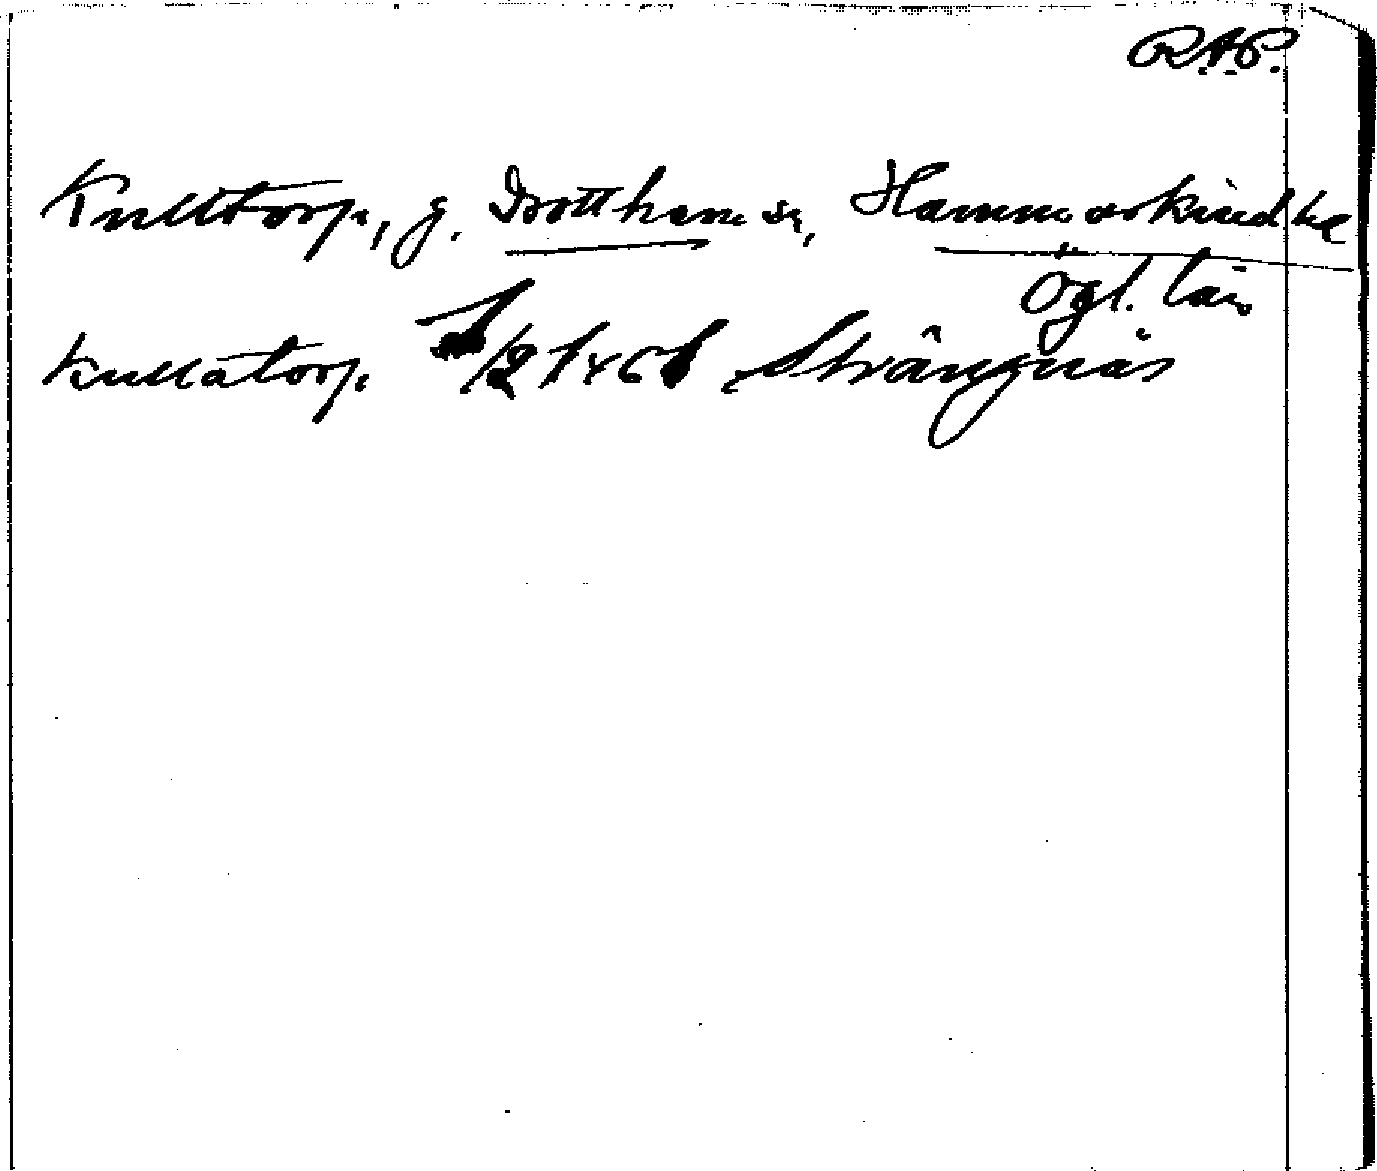 R.A.P.
Kulltorp, g. Drotthems sn, Hammarkinds hd
Ögl. län
Kullatorp /2 1461 Strängnäs